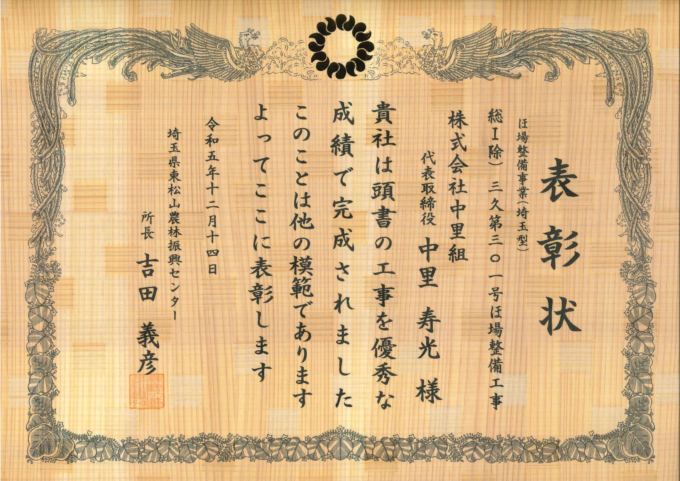 表彰状
ほ場整備事業(埼玉型)
総I除)三久第三〇一号ほ場整備工事
株式会社中里組
代表取締役 中里 寿光 様
貴社は頭書の工事を優秀な
成績で完成されました
このことは他の模範であります
よってここに表彰します
令和五年十二月十四日
埼玉県東松山農林振興センター
所長 吉田 義彦